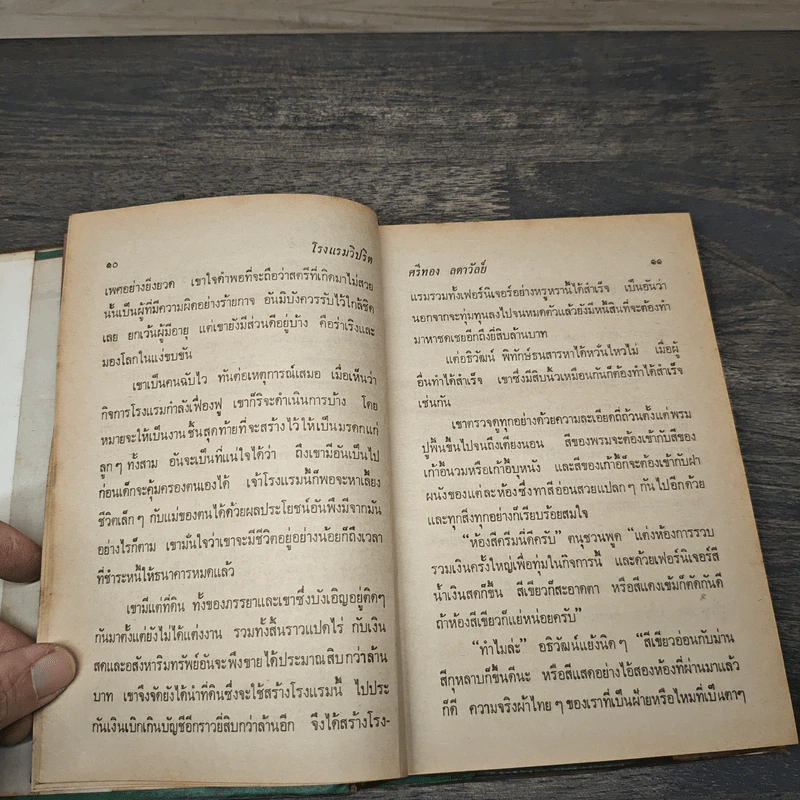 ๑๐
โรงแรมวิปริต
เพศอย่างยิ่งยวด เขาใจดำพอที่จะถือว่าสตรีที่เกิดมาไม่สวย
นั้นเป็นผู้ที่มีความผิดอย่างร้ายกาจ อันมิบังควรรับไว้ใกล้ชิด
เลย ยกเว้นผู้มีอายุ แต่เขายังมีส่วนดีอยู่บ้าง คือร่าเริงและ
มองโลกในแง่ขบขัน
เขาเป็นคนฉับไว ทันต่อเหตุการณ์เสมอ เมื่อเห็นว่า
กิจการโรงแรมกำลังเฟื่องฟู เขาก็ริจะดำเนินการบ้าง โดย
หมายจะให้เป็นงานชิ้นสุดท้ายที่จะสร้างไว้ให้เป็นมรดกแก่
ลูกๆ ทั้งสาม อันจะเป็นที่แน่ใจได้ว่า ถึงเขามีอันเป็นไป
ก่อนเด็กจะคุ้มครองตนเองได้ เจ้าโรงแรมนี้ก็พอจะหาเลี้ยง
ชีวิตเล็กๆ กับแม่ของตนได้ด้วยผลประโยชน์อันพึงมีจากมัน
อย่างไรก็ตาม เขามั่นใจว่าเขาจะมีชีวิตอยู่อย่างน้อยก็ถึงเวลา
ที่ชำระหนี้ให้ธนาคารหมดแล้ว
เขามีแต่ที่ดิน ทั้งของภรรยาและเขาซึ่งบังเอิญอยู่ติดๆ
กันมาตั้งแต่ยังไม่ได้แต่งงาน รวมทั้งสิ้นราวแปดไร่ กับเงิน
สดและอสังหาริมทรัพย์อันจะพึงขายได้ประมาณสิบกว่าล้าน
บาท เขาจึงจัดยังได้นำที่ดินซึ่งจะใช้สร้างโรงแรมนี้ ไปประ
กันเงินเบิกเกินบัญชีอีกราวยี่สิบกว่าล้านอีก จึงได้สร้างโรง-
ศรีทอง ลดาวัลย์
๑๑
แรมรวมทั้งเฟอร์นิเจอร์อย่างหรูหรานี้ได้สำเร็จ เป็นอันว่า
นอกจากจะทุ่มทุนลงไปจนหมดตัวแล้วยังมีหนี้สินที่จะต้องทำ
มาหาชดเชยอีกถึงยี่สิบล้านบาท
แต่อธิวัฒน์ พิทักษ์ธนสารหาได้หวั่นไหวไม่ เมื่อผู้
อื่นทำได้สำเร็จ เขาซึ่งมีสิบนิ้วเหมือนกันก็ต้องทำได้สำเร็จ
เช่นกัน
เขาตรวจดูทุกอย่างด้วยความละเอียดถี่ถ้วนตั้งแต่พรม
ปูพื้นขึ้นไปจนถึงเตียงนอน สีของพรมจะต้องเข้ากับสีของ
เก้าอี้นวมหรือเก้าอี้บุหนัง และสีของเก้าอี้ก็จะต้องเข้ากับฝา
ผนังของแต่ละห้องซึ่งทาสีอ่อนสวยแปลกๆ กันไปอีกด้วย
และทุกสิ่งทุกอย่างก็เรียบร้อยสมใจ
“ห้องสีครีมนี่ดีครับ” ตนุชวนพูด “แต่งห้องการรวบ
รวมเงินครั้งใหญ่เพื่อทุ่มในกิจการนี้ และด้วยเฟอร์นิเจอร์สี
น้ำเงินสดก็ขึ้น สีเขียวก็สะอาดตา หรือสีแดงเข้มก็ตัดกันดี
ถ้าห้องสีเขียวก็แย่หน่อยครับ”
“ทำไมล่ะ” อธิวัฒน์แย้งนิดๆ “สีเขียวอ่อนกับม่าน
สีกุหลาบก็ขึ้นดีนะ หรือสีแสดอย่างไอ้สองห้องที่ผ่านมาแล้ว
ก็ดี ความจริงผ้าไทยๆ ของเราที่เป็นฝ้ายหรือไหมที่เป็นตาๆ